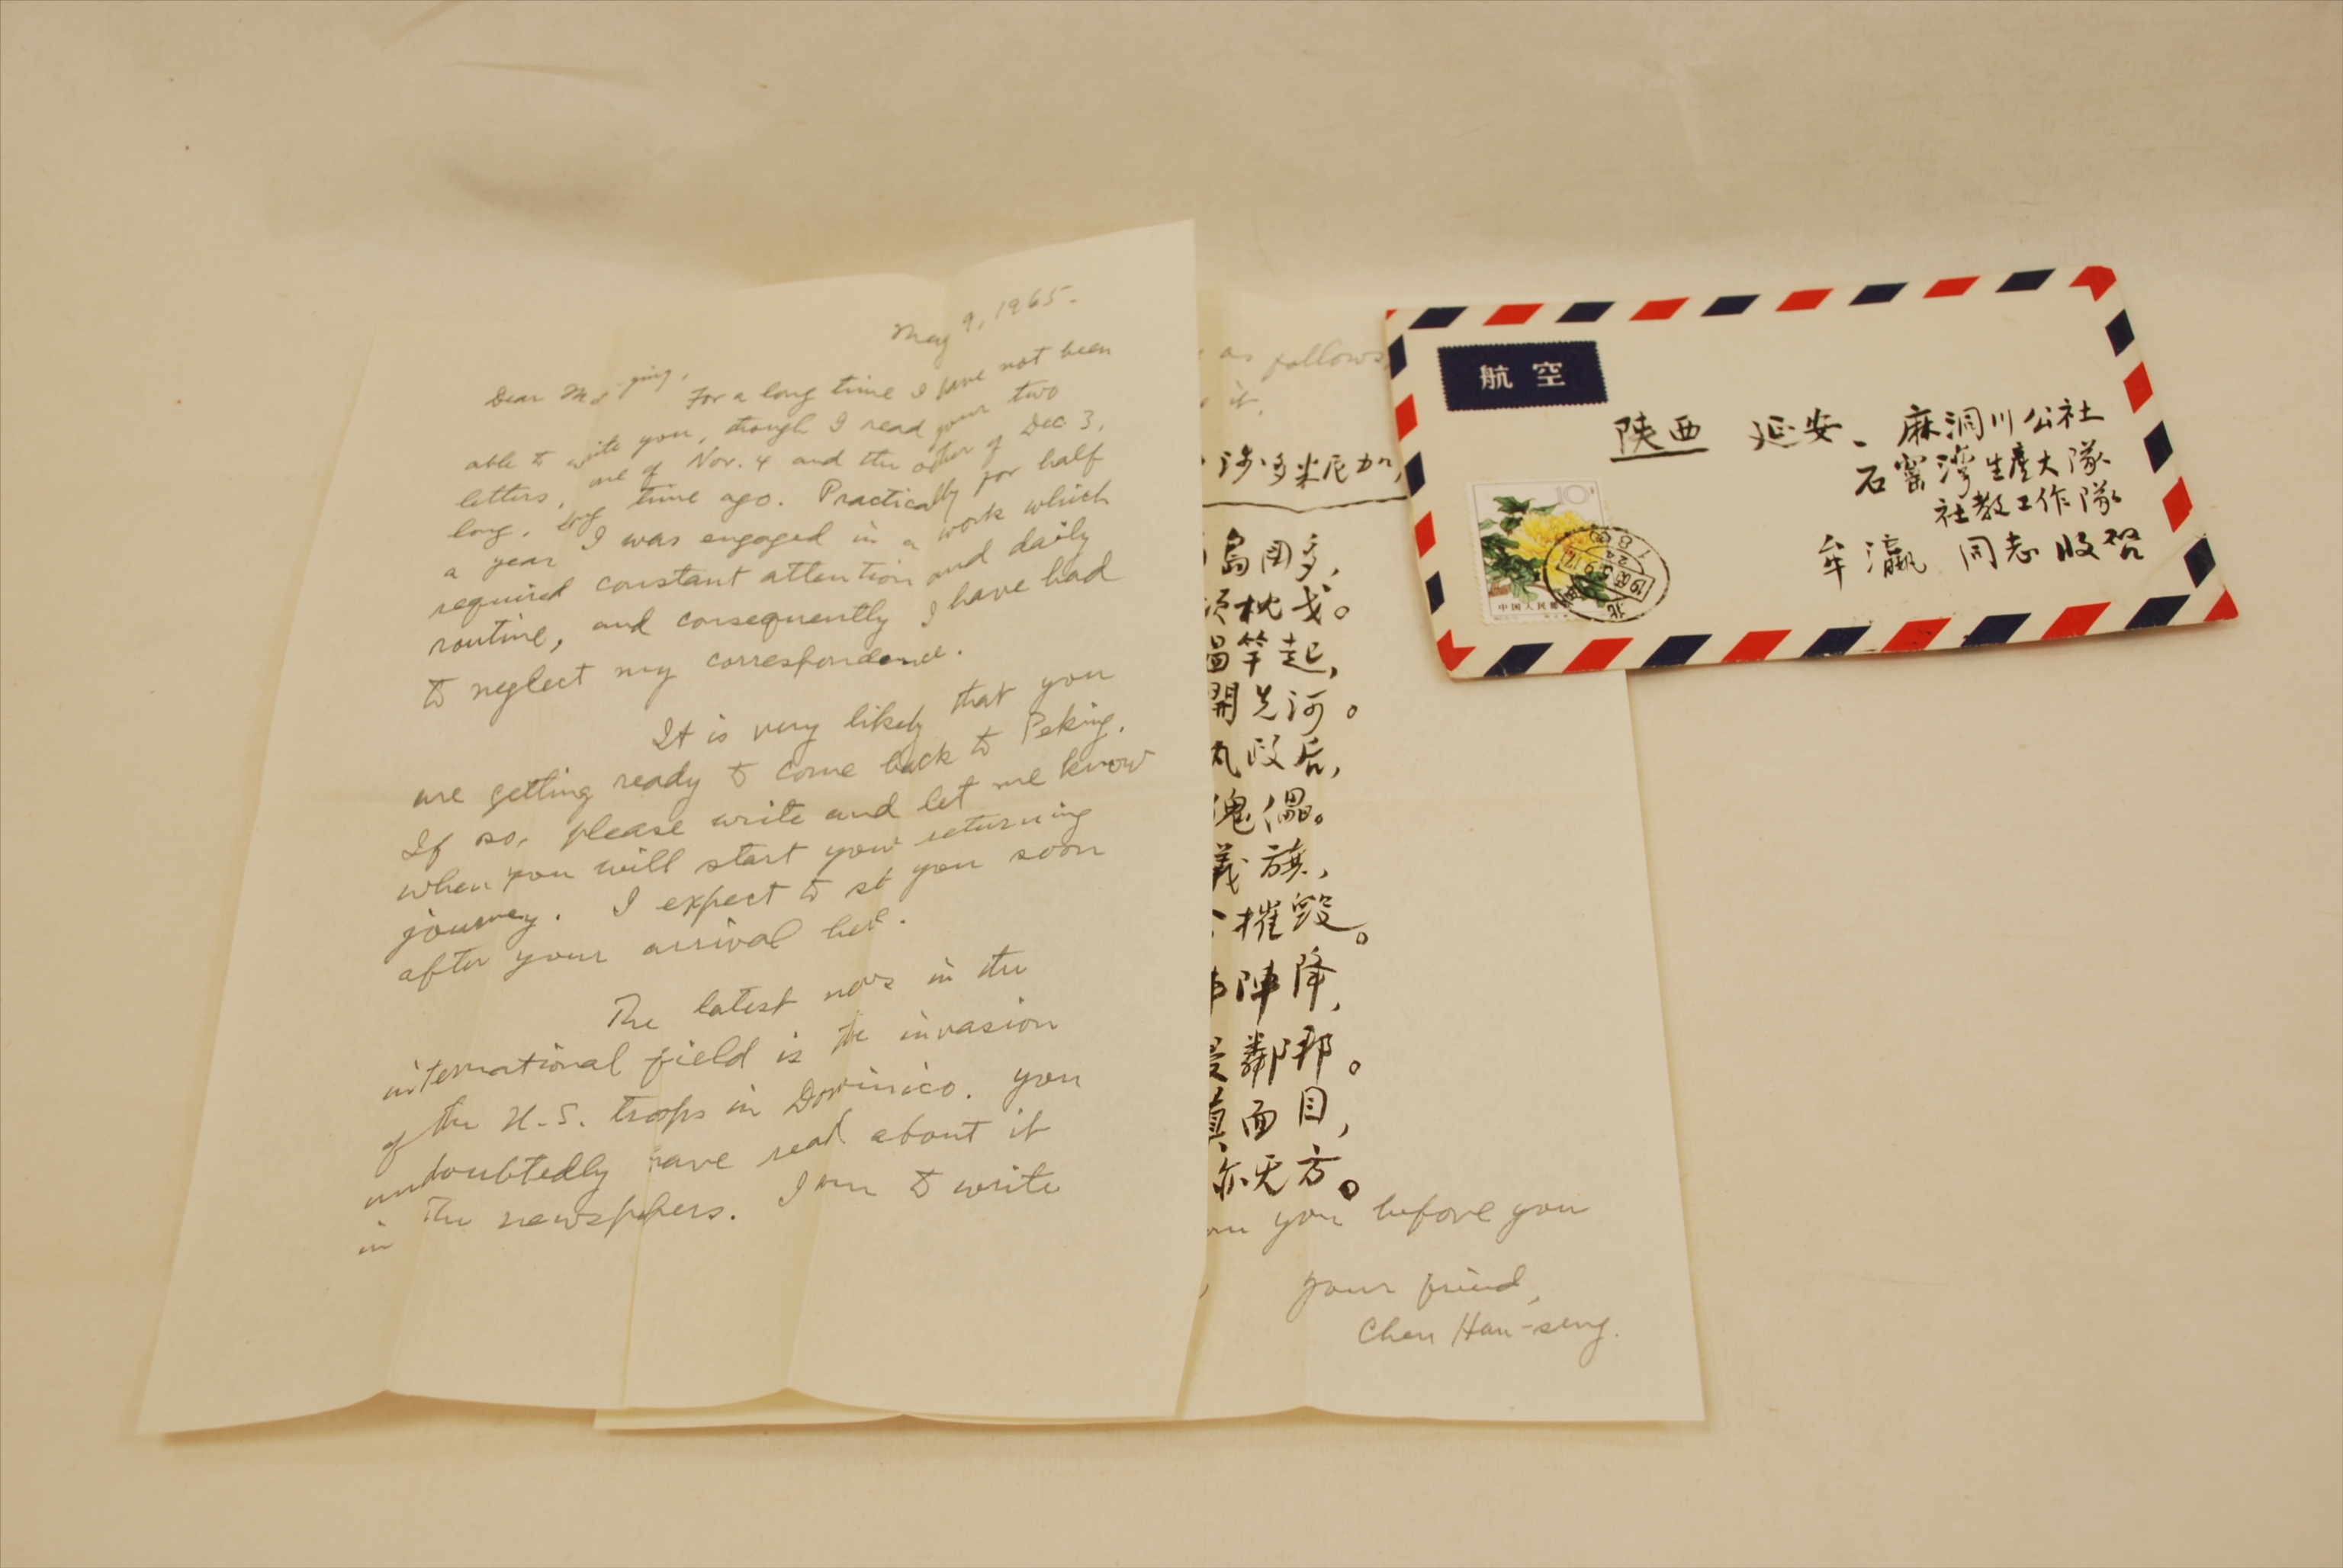 May 9, 1965.
Dear Mo-ying,
For a long time I have not been
able to write you, though I read your two
letters, one of Nov. 4 and the other of Dec 3,
long, long time ago. Practically for half
a year I was engaged in a work which
required constant attention and daily
routine, and consequently I have had
to neglect my correspondence.
It is very likely that you
are getting ready to come back to Peking.
If so, please write and let me know
when you will start your returning
journey. I expect to see you soon
after your arrival here.
The latest news in the
international field is the invasion
of the U.S. troops in Dominico. You
undoubtedly have read about it
in the newspapers. I am to write
as follows,
it.
涉多米尼加,
島国多,
枕戈。
竿起,
開先河。
政后,
傀儡。
義旗,
摧毀。
陣降,
鄰邦。
面目,
亦无方。
you before you
your friend,
Chen Han-seng.
航空
陕西 延安、麻洞川公社
石窑湾生產大隊
社教工作隊
牟瀛 同志收啓
10
中国人民邮
1965
北